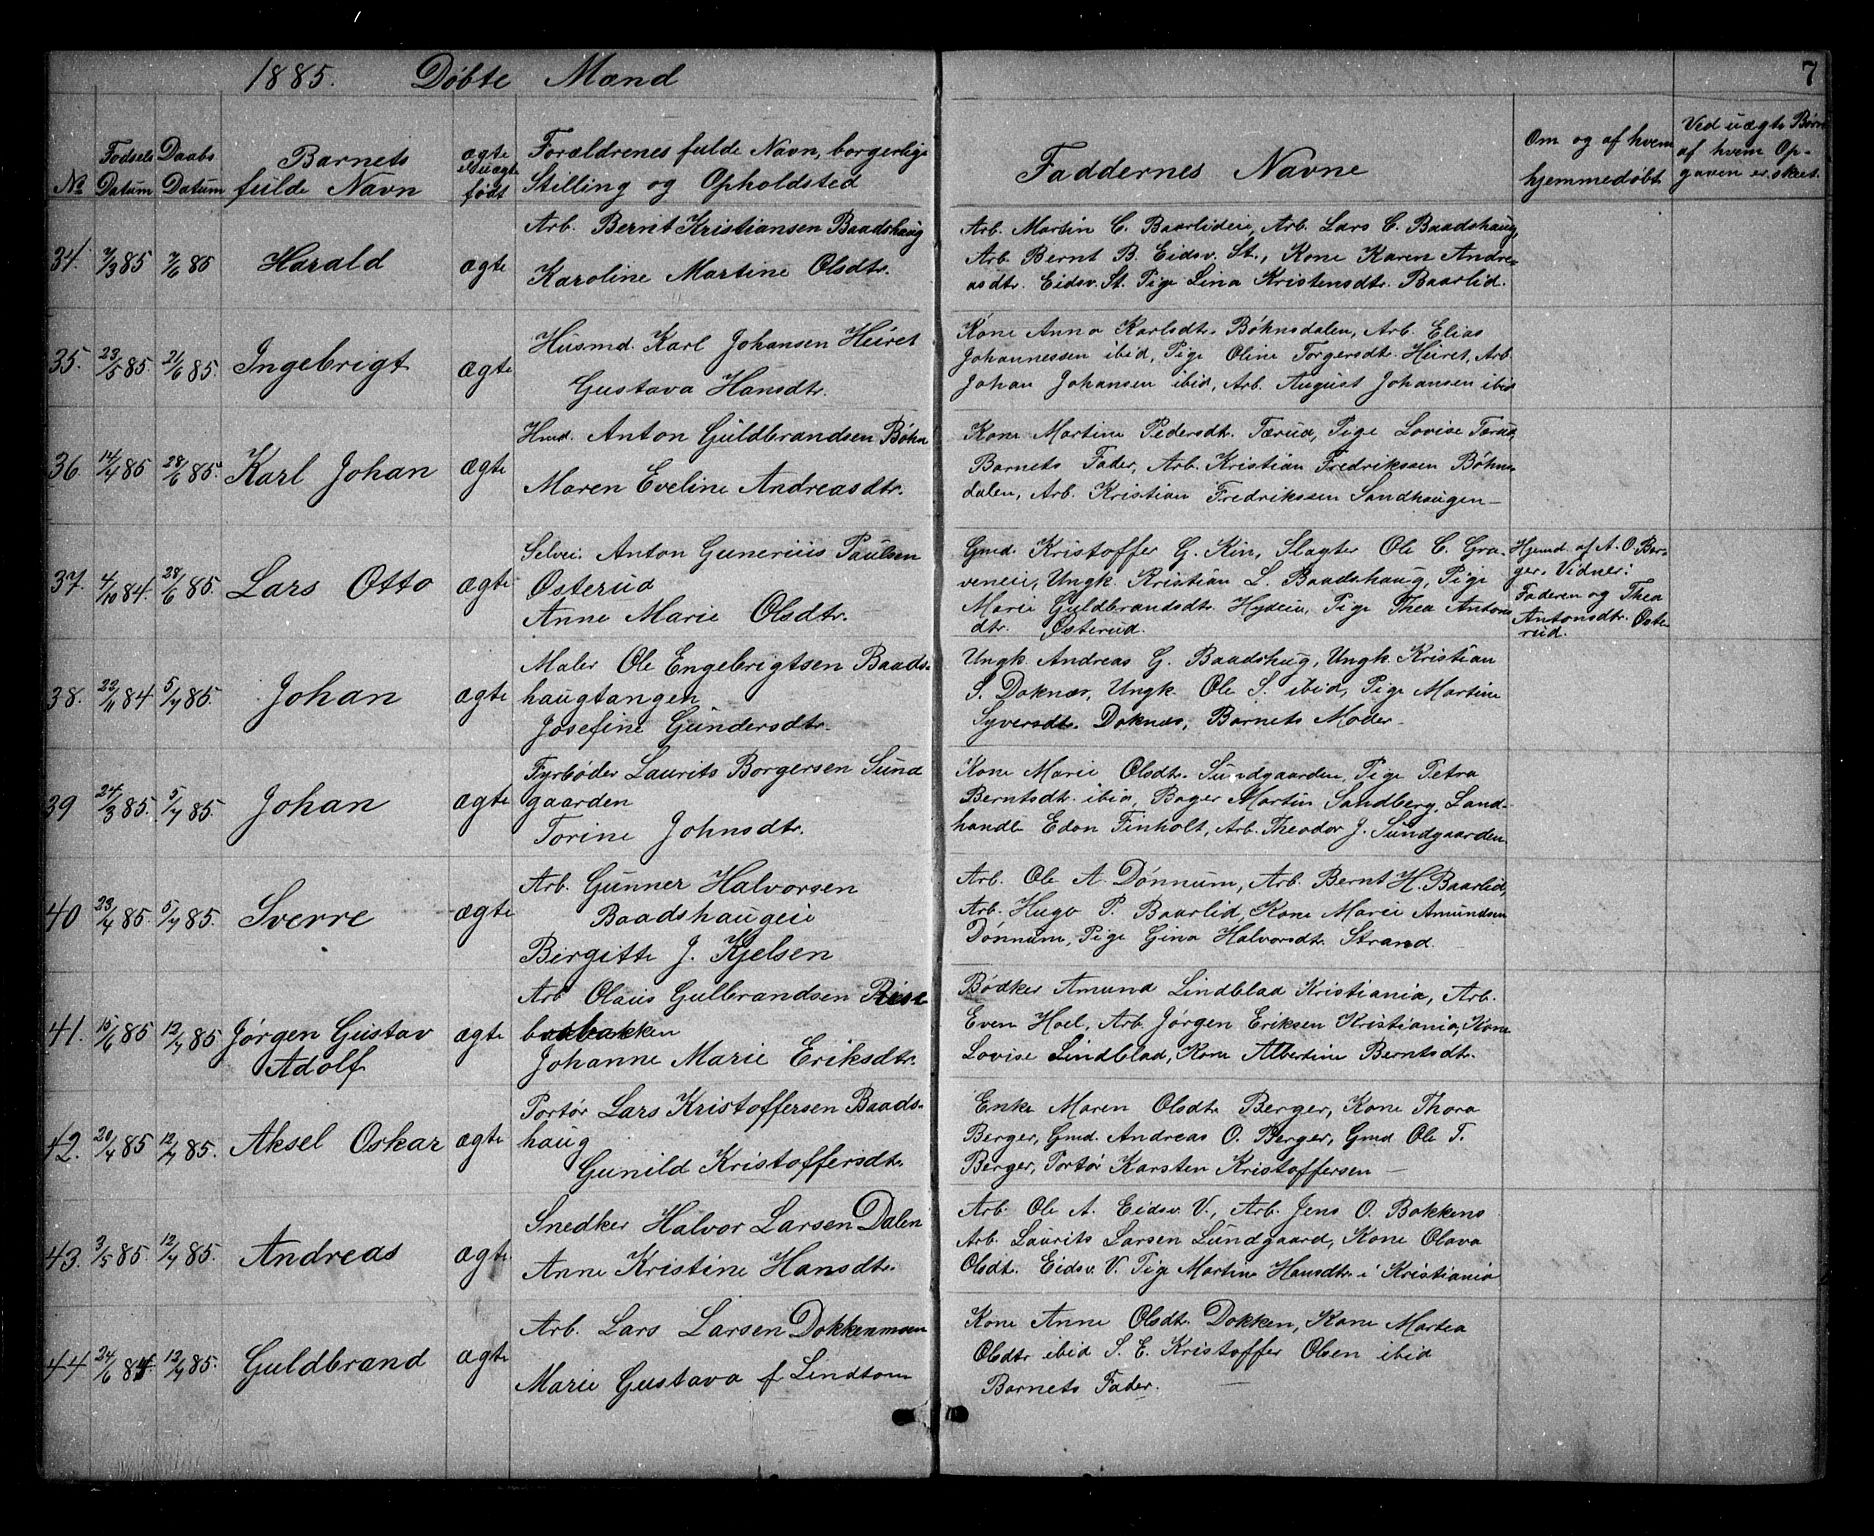 1885. Døbte Mænd
7
No
Fødsels Datum
Daabs Datum
Barnets fulde Navn
ægte ell. uægte født
Forældrenes fulde Navn, borgerlige
Stilling og Opholdsted
Faddernes Navne
Om og af hvem
hjemmedøbt
Ved uægte Børn
af hvem Op-
gaven er skeet.
34. 7/3 85 7/6 85 Harald ægte
Arb. Bernt Kristiansen Baadshaug
Karoline Martine Olsdtr.
Arb. Martin C. Baarlideie, Arb. Lars C. Baadshaug,
Arb. Bernt B. Eidsv. St., Kone Karen Andre-
asdtr. Eidsv. St. Pige Lina Kristensdtr. Baarlid.
35. 23/5 85. 21/6 85. Ingebrigt ægte
Husmd. Karl Johansen Heiret
Gustava Hansdtr.
Kone Anna Karlsdtr. Bøhnsdalen, Arb. Elias
Johannessen ibid, Pige Oline Torgersdtr. Heiret, Arb.
Johan Johansen ibid, Arb. August Johansen ibid
36 14/4 85 28/6 85. Karl Johan ægte
Hmd. Anton Guldbrandsen Bøhn
Maren Eveline Andreasdtr.
Kone Martine Pedersdtr. Tærud, Pige Lovise Tærud,
Barnets Fader, Arb. Kristian Fredrikssen Bøhns-
dalen, Arb. Kristian Fredrikssen Sandhaugen
37. 4/10 84. 28/6 85. Lars Otto ægte
Selvei. Anton Gunerius Paulsen
Østerud
Anne Marie Olsdtr.
Gmd. Kristoffer G. Kin, Slagter Ole C. Gra-
veneie, Ungk. Kristian L. Baadshaug, Pige
Marie Guldbrandsdtr. Hydeie, Pige Thea Antons
dtr. Østerud.
Hjemd. af A. O. Ber-
ger. Vidner:
Faderen og Thea
Antonsdtr. Øste
rud.
38. 22/11 84 5/7 85. Johan ægte
Maler Ole Engebrigtsen Baads-
haugtangen
Josefine Gundersdtr.
Ungk. Andreas G. Baadshug, Ungk. Kristian
S. Doknæs, Ungk. Ole S. ibid, Pige Martine
Syversdtr. Doknæs, Barnets Moder
39 24/3 85. 5/7 85. Johan ægte
Fyrbøder Laurits Borgersen Sund
gaarden
Torine Johnsdtr.
Kone Marie Olsdtr. Sundgaarden, Pige Petra
Berntsdtr. ibid, Bager Martin Sandberg, Land-
handl. Edon Finholt, Arb. Theodor J. Sundgaarden
40 23/4 85. 5/7 85. Sverre ægte
Arb. Gunner Halvorsen
Baadshaugeie
Birgitte J. Kjelsen
Arb. Ole A. Dønnum, Arb. Bernt H. Baarlid,
Arb. Hugo P. Baarlid, Kone Marie Amundsen
Dønnum, Pige Gina Halvorsdtr. Strand
41. 15/6 85 12/7 85 Jørgen Gustav
Adolf ægte
Arb Olaus Gulbrandsen Rise
bakken
Johanne Marie Eriksdtr.
Bødker Amund Lindblad Kristiania, Arb.
Even Hoel, Arb. Jørgen Eriksen Kristiania, Kone
Lovise Lindblad, Kone Albertine Berntsdtr.
42. 20/4 85 12/7 85. Aksel Oskar ægte
Portør Lars Kristoffersen Baads-
haug
Gunild Kristoffersdtr.
Enke Maren Olsdtr Berger, Kone Thora
Berger, Gmd. Andreas O. Berger, Gmd Ole T.
Berger, Portør Karsten Kristoffersen
43. 3/5 85. 12/7 85. Andreas ægte
Snedker Halvor Larsen Dalen
Anne Kristine Hansdtr.
Arb. Ole A. Eidsv. V., Arb. Jens O. Bokkens
Arb. Laurits Larsen Sundgaard, Kone Olava
Olsdt. Eidsv. V. Pige Martine Hansdtr. i Kristiania
44 24/6 84. 12/7 85. Guldbrand ægte
Arb. Lars Larsen Dokkenmoen
Marie Gustava f. Lindtom
Kone Anne Olsdtr. Dokken, Kone Martea
Olsdtr ibid S. E. Kristoffer Olsen ibid
Barnets Fader.